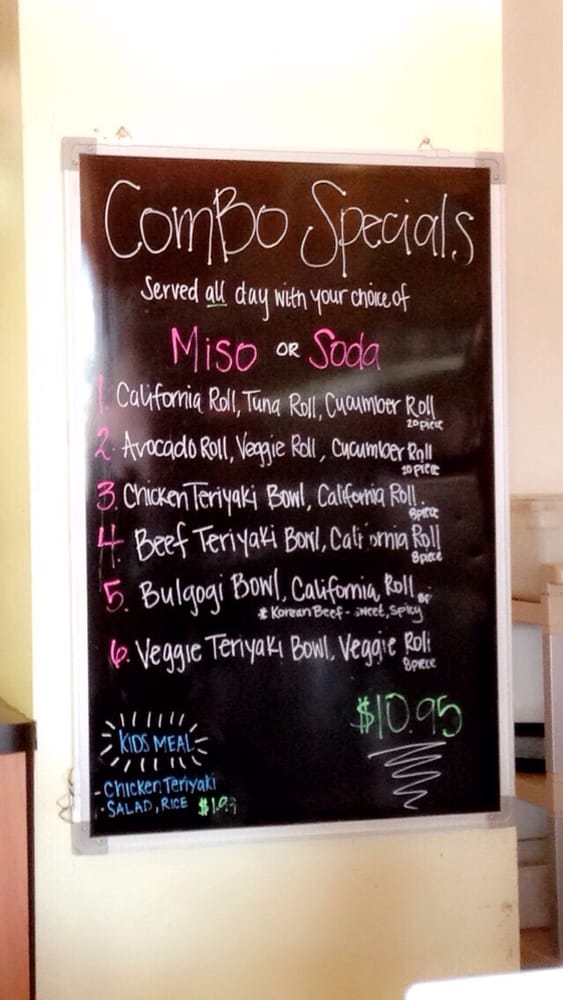 ComBo Specials
Served all day with your choice of
Miso OR Soda
1. California Roll, Tuna Roll, Cucumber Roll
20 piece
2. Avocado Roll, Veggie Roll, Cucumber Roll
20 piece
3. Chicken Teriyaki Bowl, California Roll.
8 piece
4. Beef Teriyaki Bowl, California Roll
8 piece
5. Bulgogi Bowl, California Roll
* Korean Beef - sweet, spicy
6. Veggie Teriyaki Bowl, Veggie Roll
8 piece
$10.95
KIDS MEAL
- Chicken Teriyaki
- SALAD, RICE